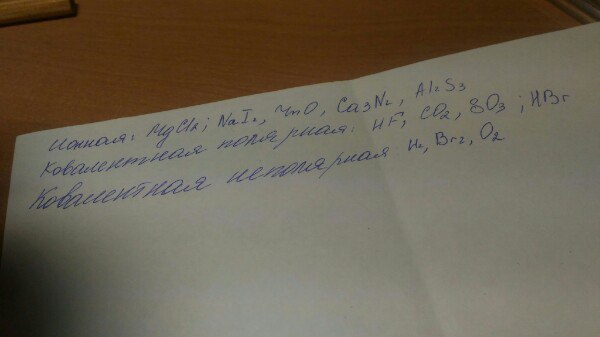 Ионная: MgCl2; NaI2, ZnO, Ca3N2, Al2S3
Ковалентная полярная: HF, CO2, SO3; HBr
Ковалентная неполярная H2, Br2, O2